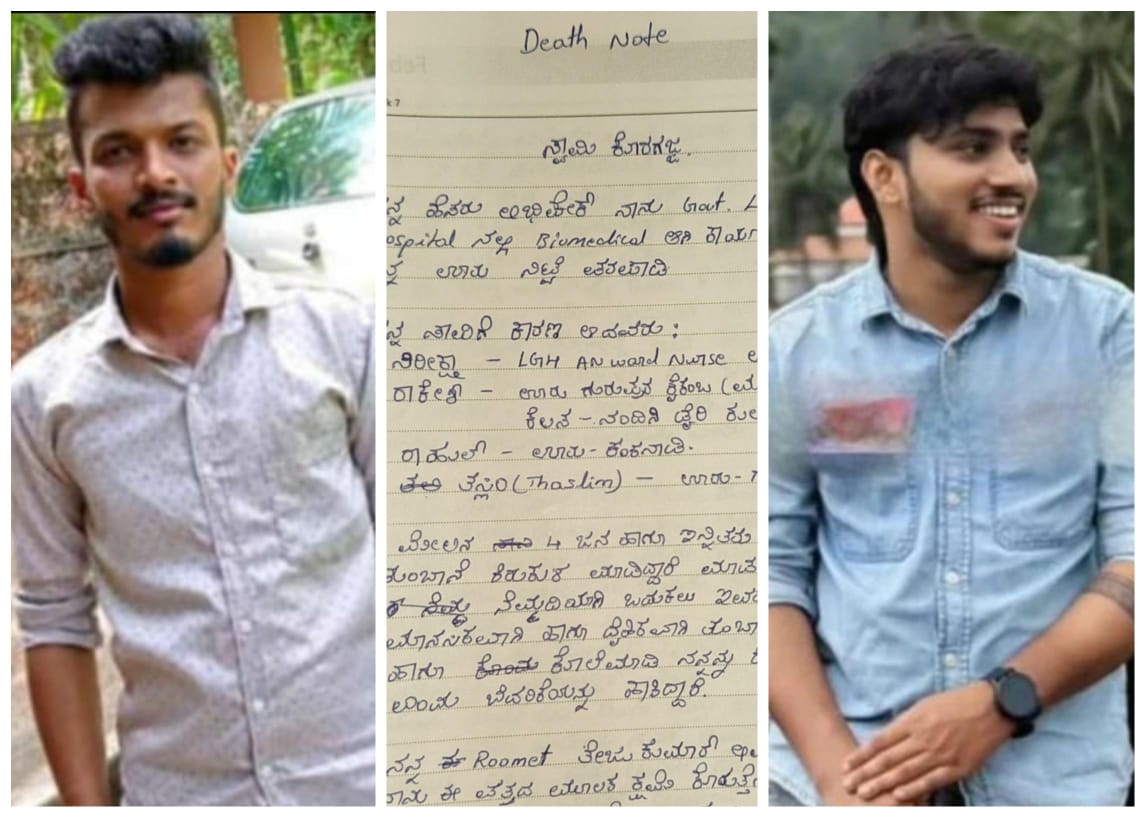 Death Note
k 7
ಸ್ವಾಮಿ ಕೊರಗಜ್ಜ.
ನ್ನ ಹೆಸರು ಅಭಿಷೇಕ್ ನಾನು Govt. L
ospital ನಲ್ಲಿ Biomedical ಆಗಿ ಕಾರ್ಯ
ನ್ನ ಊರು ನಿಟ್ಟೆ
ನ್ನ ಸಾವಿಗೆ ಕಾರಣ ಆದವರು :
ನಿರೀಕ್ಷಾ – LGH AN ward Nurse
ರಾಕೇಶ್ – ಊರು ಗುರುಪುರ ಕೈಕಂಬ (ಮ
ಕೆಲಸ – ನಂದಿನಿ ಡೈರಿ ಕುಲ
ರಾಹುಲ್ – ಊರು – ಕಂಕನಾಡಿ.
ತಸ್ಲಿಂ (Thaslim) – ಊರು –
ಮೇಲಿನ 4 ಜನ ಹಾಗೂ
ತುಂಬಾನೆ ಕಿರುಕುಳ ಮಾಡಿದ್ದಾರೆ
ನೆಮ್ಮದಿಯಾಗಿ ಬದುಕಲು
ಮಾನಸಿಕವಾಗಿ ಹಾಗೂ ದೈಹಿಕವಾಗಿ ತುಂಬಾ
ಹಾಗೂ ಕೊಲೆಮಾಡಿ ನನ್ನನ್ನು
ಬೆದರಿಕೆಯನ್ನು ಹಾಕಿದ್ದಾರೆ.
ನನ್ನ Roomet ತೇಜು ಕುಮಾರ್
ನಾನು ಈ ಪತ್ರದ ಮೂಲಕ ಕ್ಷಮೆ